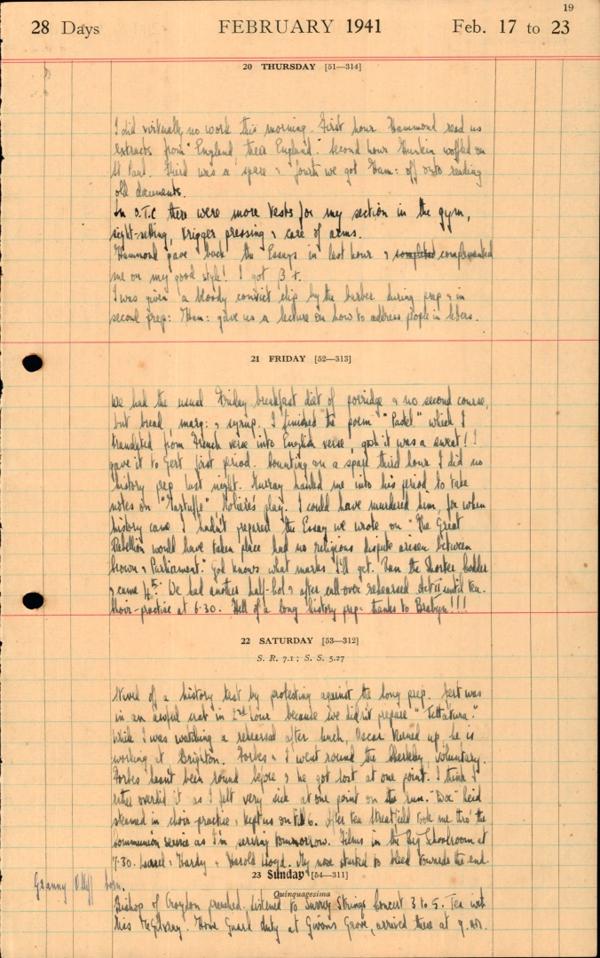 19
28 Days FEBRUARY 1941 Feb. 17 to 23
20 THURSDAY [51—314]
I did virtually no work this morning. First hour Hammond read us
extracts from "England, their England". Second hour waffled on
St Paul. Third was a spare & fourth we got Ham: off onto reading
old documents.
In O.T.C there were more tests for my section in the gym,
sight-setting, trigger pressing & care of arms.
Hammond gave back the Essays in last hour & complimented
me on my good style! I got B+.
I was given a bloody convict clip by the barber during prep & in
second prep: Ham: gave us a lecture on how to address people in letters.
21 FRIDAY [52—313]
We had the usual Friday breakfast diet of porridge & no second course,
but bread, marg: & syrup. I finished the poem "Padel" which I
translated from French verse into English verse, gosh it was a sweat!!
gave it to Gert first period. Counting on a spare third hour I did no
history prep last night. Murray hauled me into his period to take
notes on "Tartuffe", Molière's play. I could have murdered him, for when
history came I hadn't prepared the Essay we wrote on "The Great
Rebellion would have taken place had no religious dispute arisen between
Crown & Parliament." God knows what marks I'll get. Ran the Shorter
& came 4th. We had another half-hol & after call-over rehearsed until tea.
Choir-practice at 6.30. Hell of a long history prep: thanks to Brabyn!!!
22 SATURDAY [53—312]
S. R. 7.1; S. S. 5.27
of a history test by protesting against the long prep. Gert was
in an awful in 2nd hour because we didn't prepare
While I was watching a rehearsal after lunch, Oscar turned up, he is
working at Brighton. Forbes & I went round the voluntary.
Forbes hasn't been round before & he got lost at one point. I think I
rather overdid it as I felt very sick at one point on the run. "Doc" Reid
steamed in choir practice & kept us on till 6. After tea Streatfield took me thro' the
Communion service as I'm serving tomorrow. Films in the Big Schoolroom at
7.30. Laurel & Hardy & Harold Lloyd. My nose started to bleed towards the end.
23 Sunday [54—311]
Granny born.
Quinquagesima
Bishop of Croydon preached. Listened to Surrey Strings Concert 3 to 5. Tea with
Miss McGilvray. Home Guard duty at Givons Grove, arrived there at 9.